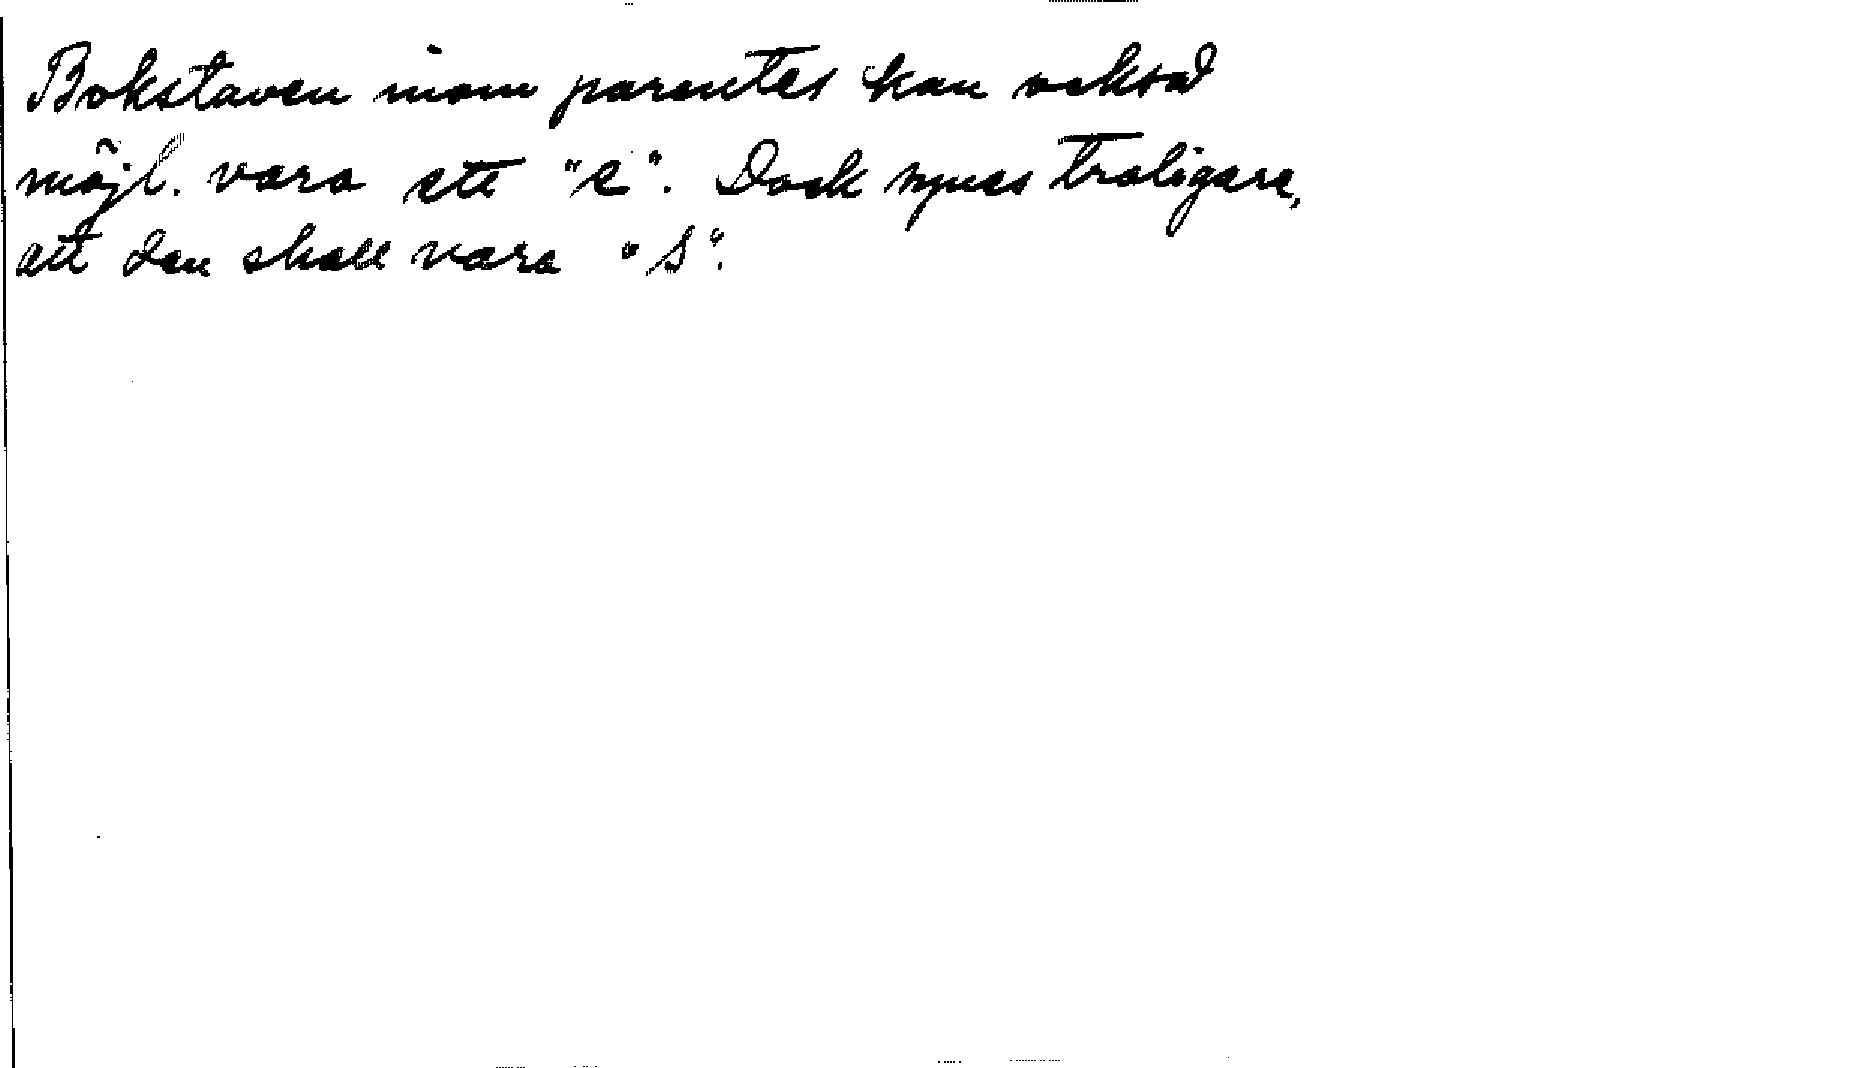 Bokstaven inom parentes kan också
möjl. vara ett "e". Dock synes troligare,
att den skall vara "s".